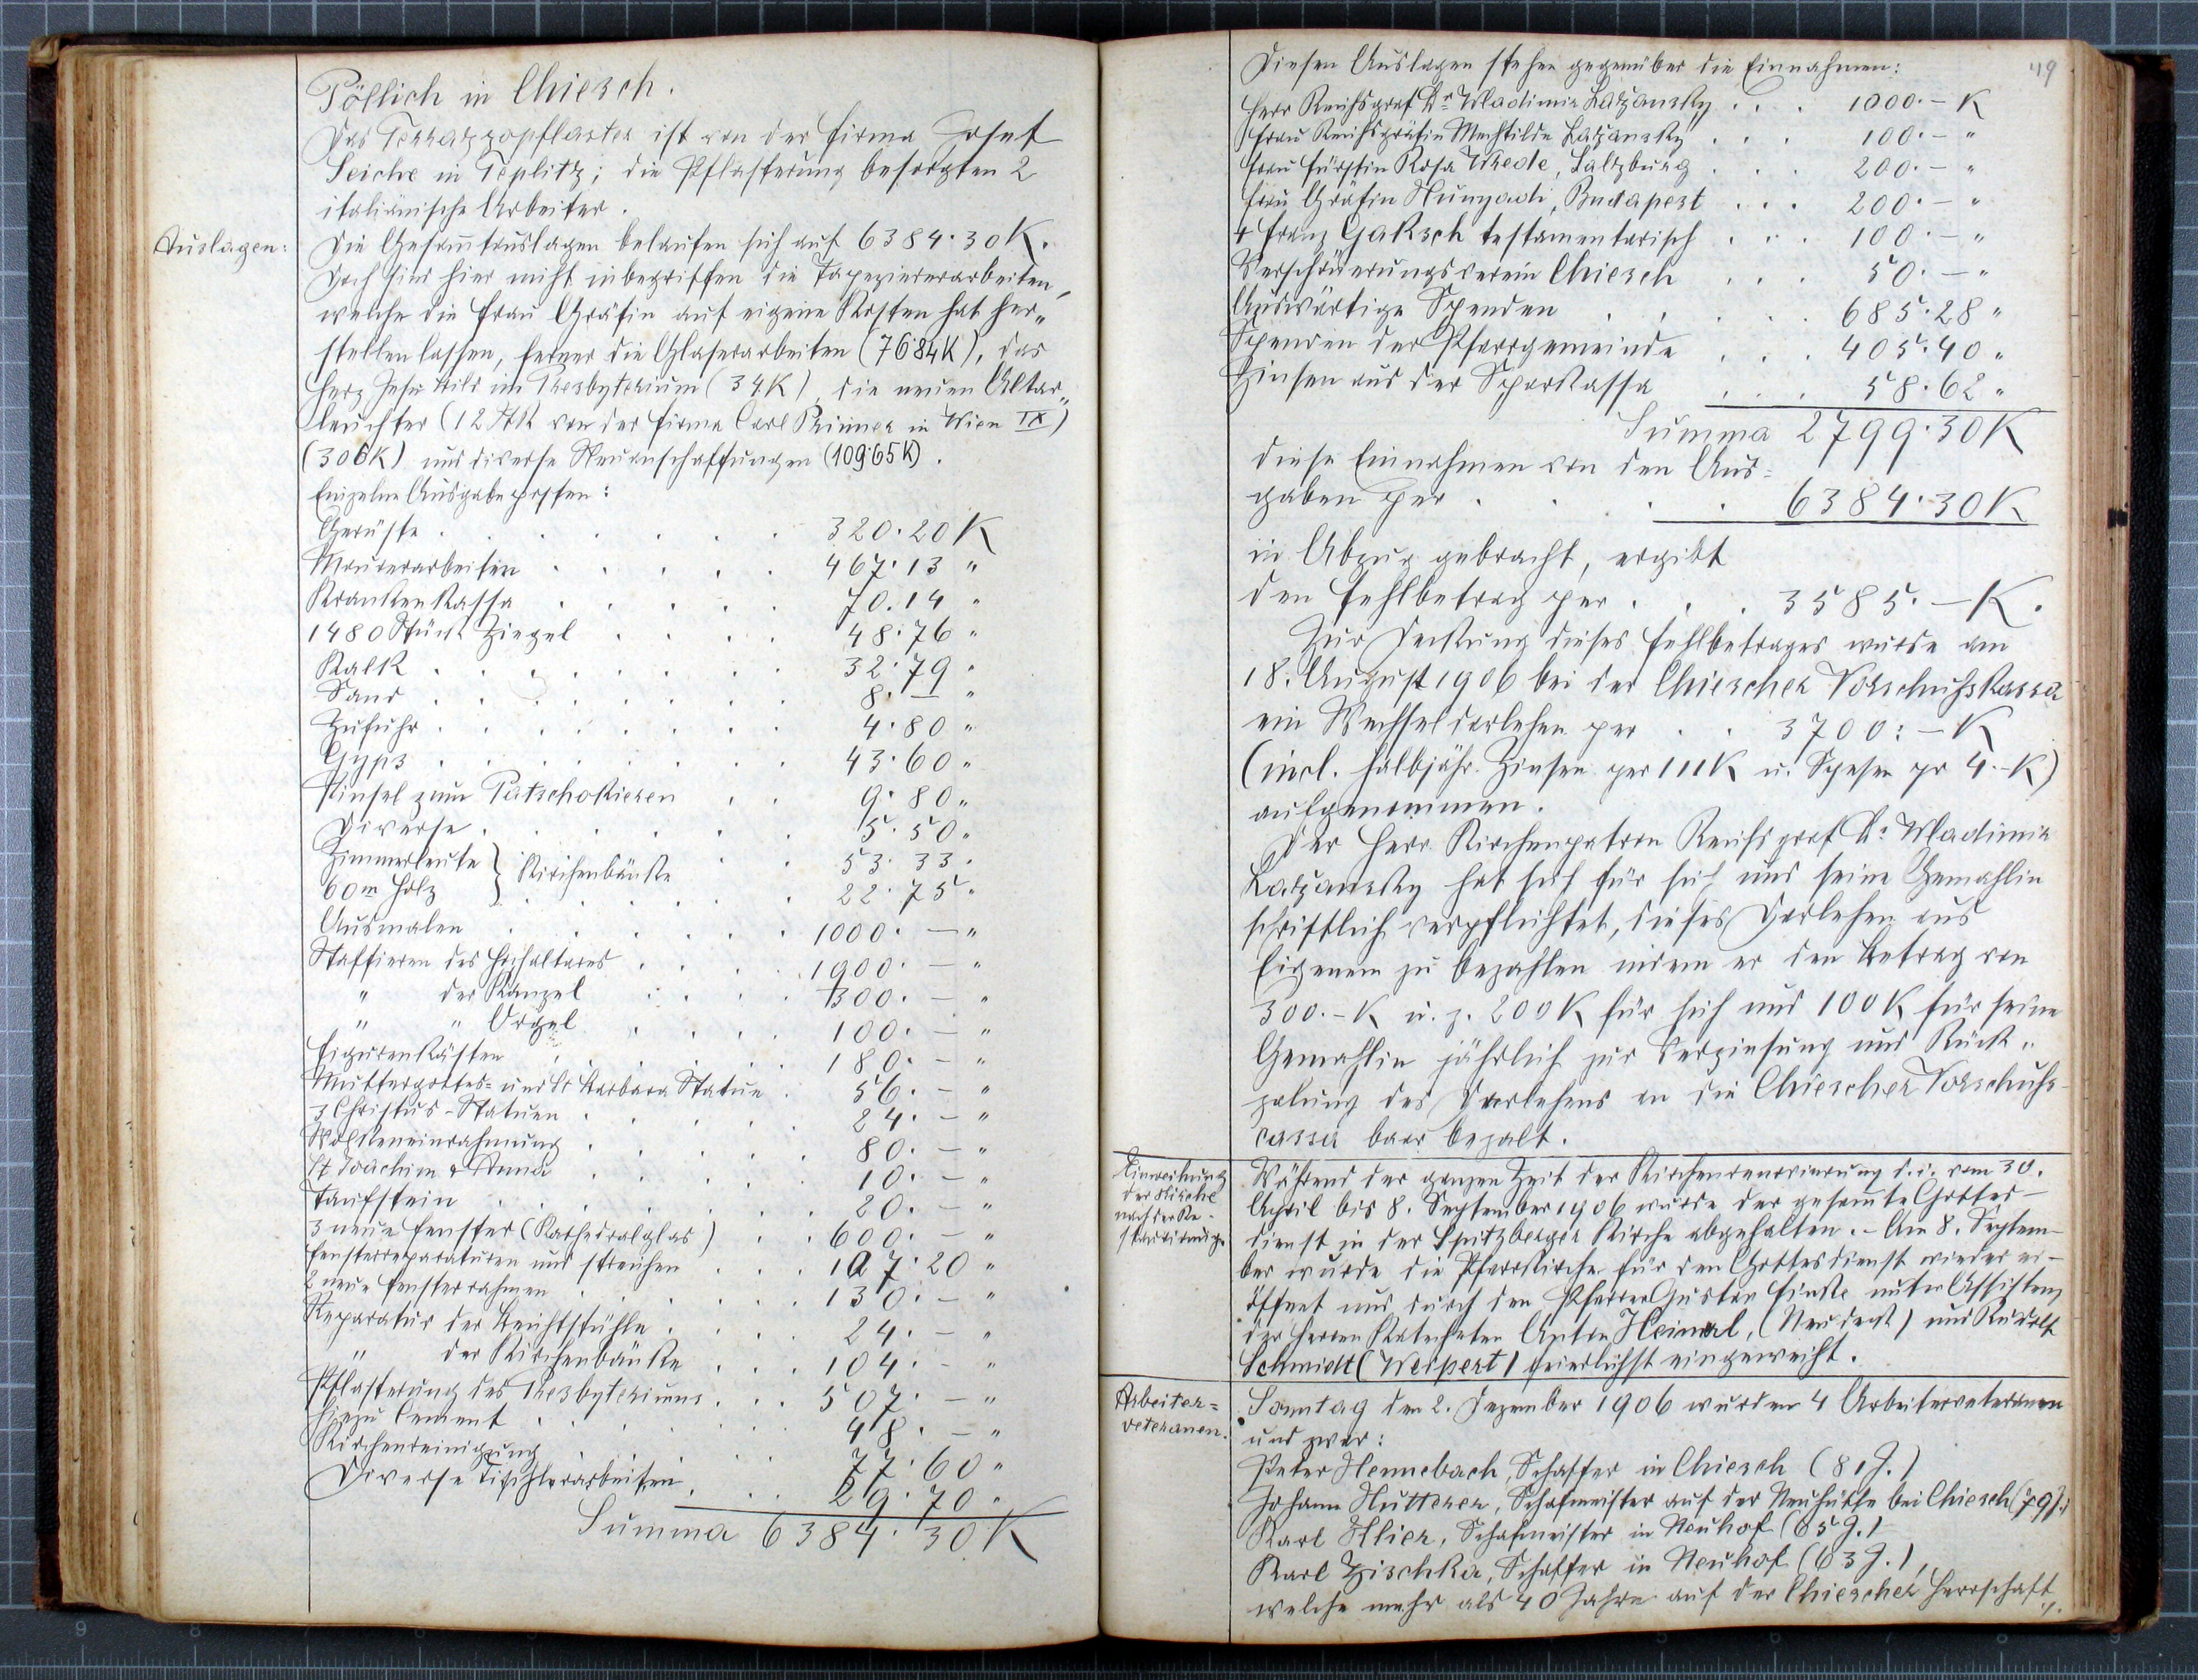 Pöllich in Chiesch.
Das Terrazzopflaster ist von der Firma Josef
Seiche in Teplitz; die Pflasterung besorgten 2
italiänische Arbeiter.
Auslagen:
Die Gesam̅tauslagen belaufen sich auf 6384·30K.
Doch sind hier nicht inbegriffen die Tapeziererarbeiten,
welche die Frau Gräfin auf eigene Kosten hat her„
stellen lassen, ferner die Glaserarbeiten (76·84K), das
Herz Jesu Bild im Presbyterium (34K), die neuen Altar„
leuchter (12 Stk von der Firma Carl Prinner in Wien IX)
(306K) und diverse Neuanschaffungen (109·65K).
Einzelne Ausgabeposten:
Gerüste . . . . . . . 320·20K
Maurerarbeiten . . . . . 467·13 „
Krankenkassa . . . . . 70.14 „
1480 Stück Ziegel . . . . 48·76 „
Kalk . . . . . . . 32·79 „
Sand . . . . . . . 8.— „
Zufuhr . . . . . . . 4·80 „
Gyps . . . . . . . 43·60 „
Pinsel zum Patschokieren . . 9·80 „
Diverse . . . . . . 5·50 „
Zimmerleute } Kirchenbänke . . 53·33 „
60m Holz . . . . . . 22·75 „
Ausmalen . . . . . . 1000·— „
Staffieren des Hochaltares . . . . 1900·— „
„ der Kanzel . . . . 300·— „
„ „ Orgel . . . . 100·— „
Figurenkästen . . . . . 180·— „
Muttergottes= und St Barbara Statue . 56·— „
3 Christus-Statuen . . . . . 24·— „
. . . . . 80·— „
St Joachim & Anna . . . . . 10·— „
Taufstein . . . . . . . 20·— „
3 neue Fenster (Kathedralglas) . . 600·— „
Fensterreparaturen und streichen . . . 107·20 „
2 neue Fensterrahmen . . . . . 130·— „
Reparatur der Beichtstühle . . . . 24·— „
„ der Kirchenbänke . . . 104·— „
Pflasterung des Presbyteriums . . . 507·— „
Hiezu Cement . . . . . . 48·— „
Kirchenreinigung . . . . . 77·60 „
Diverse Tischlerarbeiten . . . 29·70 „
Summa 6384·30K
49
Diesen Auslagen stehen gegenüber die Einnahmen:
Herr Reichsgraf Dr Wladimir Lažansky . . . 1000·— K
Frau Reichsgräfin Mechtilde Lažansky . . . 100·— „
Frau Fürstin Rosa Wrede, Salzburg . . . 200·— „
Frau Gräfin Hunyadi, Budapest . . . 200·— „
† Franz Gaksch testamentarisch . . . 100·— „
Verschönerungsverein Chiesch . . . 50·— „
Auswärtige Spenden . . . . . 685·28 „
Spenden der Pfarrgemeinde . . . 405·40 „
Zinsen aus der Sparkassa . . . 58·62 „
Summa 2799·30K
diese Einnahmen von den Aus=
gaben per . . . . 6384·30K
in Abzug gebracht, ergibt
den Fehlbetrag per . . . 3585.—K.
Zur Deckung dieses Fehlbetrages wurde am
18. August 1906 bei der Chiescher Vorschußkassa
ein Wechseldarlehen per . . 3700:—K
(incl. halbjähr. Zinsen per 111K u. Spesen pr 4.-K)
aufgenommen.
Der Herr Kirchenpatron Reichsgraf Dr Wladimir
Lažansky hat sich für sich und seine Gemahlin
schriftlich verpflichtet, dieses Darlehen aus
Eigenem zu bezahlen indem er den Betrag von
300.-K u. z. 200K für sich und 100K für seine
Gemahlin jährlich zur Verzinsung und Rück„
zalung des Darlehens an die Chiescher Vorschuß-
cassa baar bezalt.
Einweihung
der Kirche
nach der Re-
staurirung.
Während der ganzen Zeit der Kirchenrenovierung d. i. vom 30.
April bis 8. September 1906 wurde der gesam̅te Gottes-
dienst in der Spitzberger Kirche abgehalten. - Am 8. Septem-
ber wurde die Pfarrkirche für den Gottesdienst wieder er-
öffnet und durch den Pfarrer Gustav Finke unter Assistenz
der Herren Katecheten Anton Heimerl, (Neudek) und Rudolf
Schmidt (Weipert) feierlichst eingeweiht.
Arbeiter=
veteranen.
Sonntag den 2. Dezember 1906 wurden 4 Arbeiterveteranen
und zwar:
Peter Hennebach, Schaffer in Chiesch (81J.)
Johann Hutterer, Schafmeister auf der Neuhütte bei Chiesch (79J.)
Karl Illier, Schafmeister in Neuhof (65J.)
Karl Zischka, Schaffer in Neuhof (63J.),
welche mehr als 40 Jahre auf der Chiescher Herrschaft